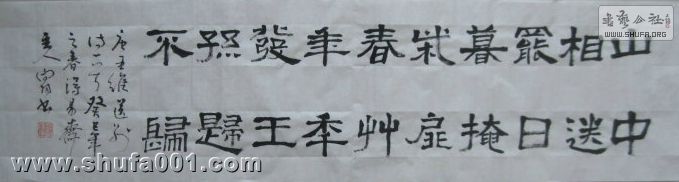 山中
相送
罷日
暮掩
柴扉
春艸
年年
發王
孫歸
不歸
唐王維送別
詩一首癸巳年
之春得易齋
主人書
書藝公社
WWW.SHUFA.ORG
www.shufa001.com
www.shufa001.com